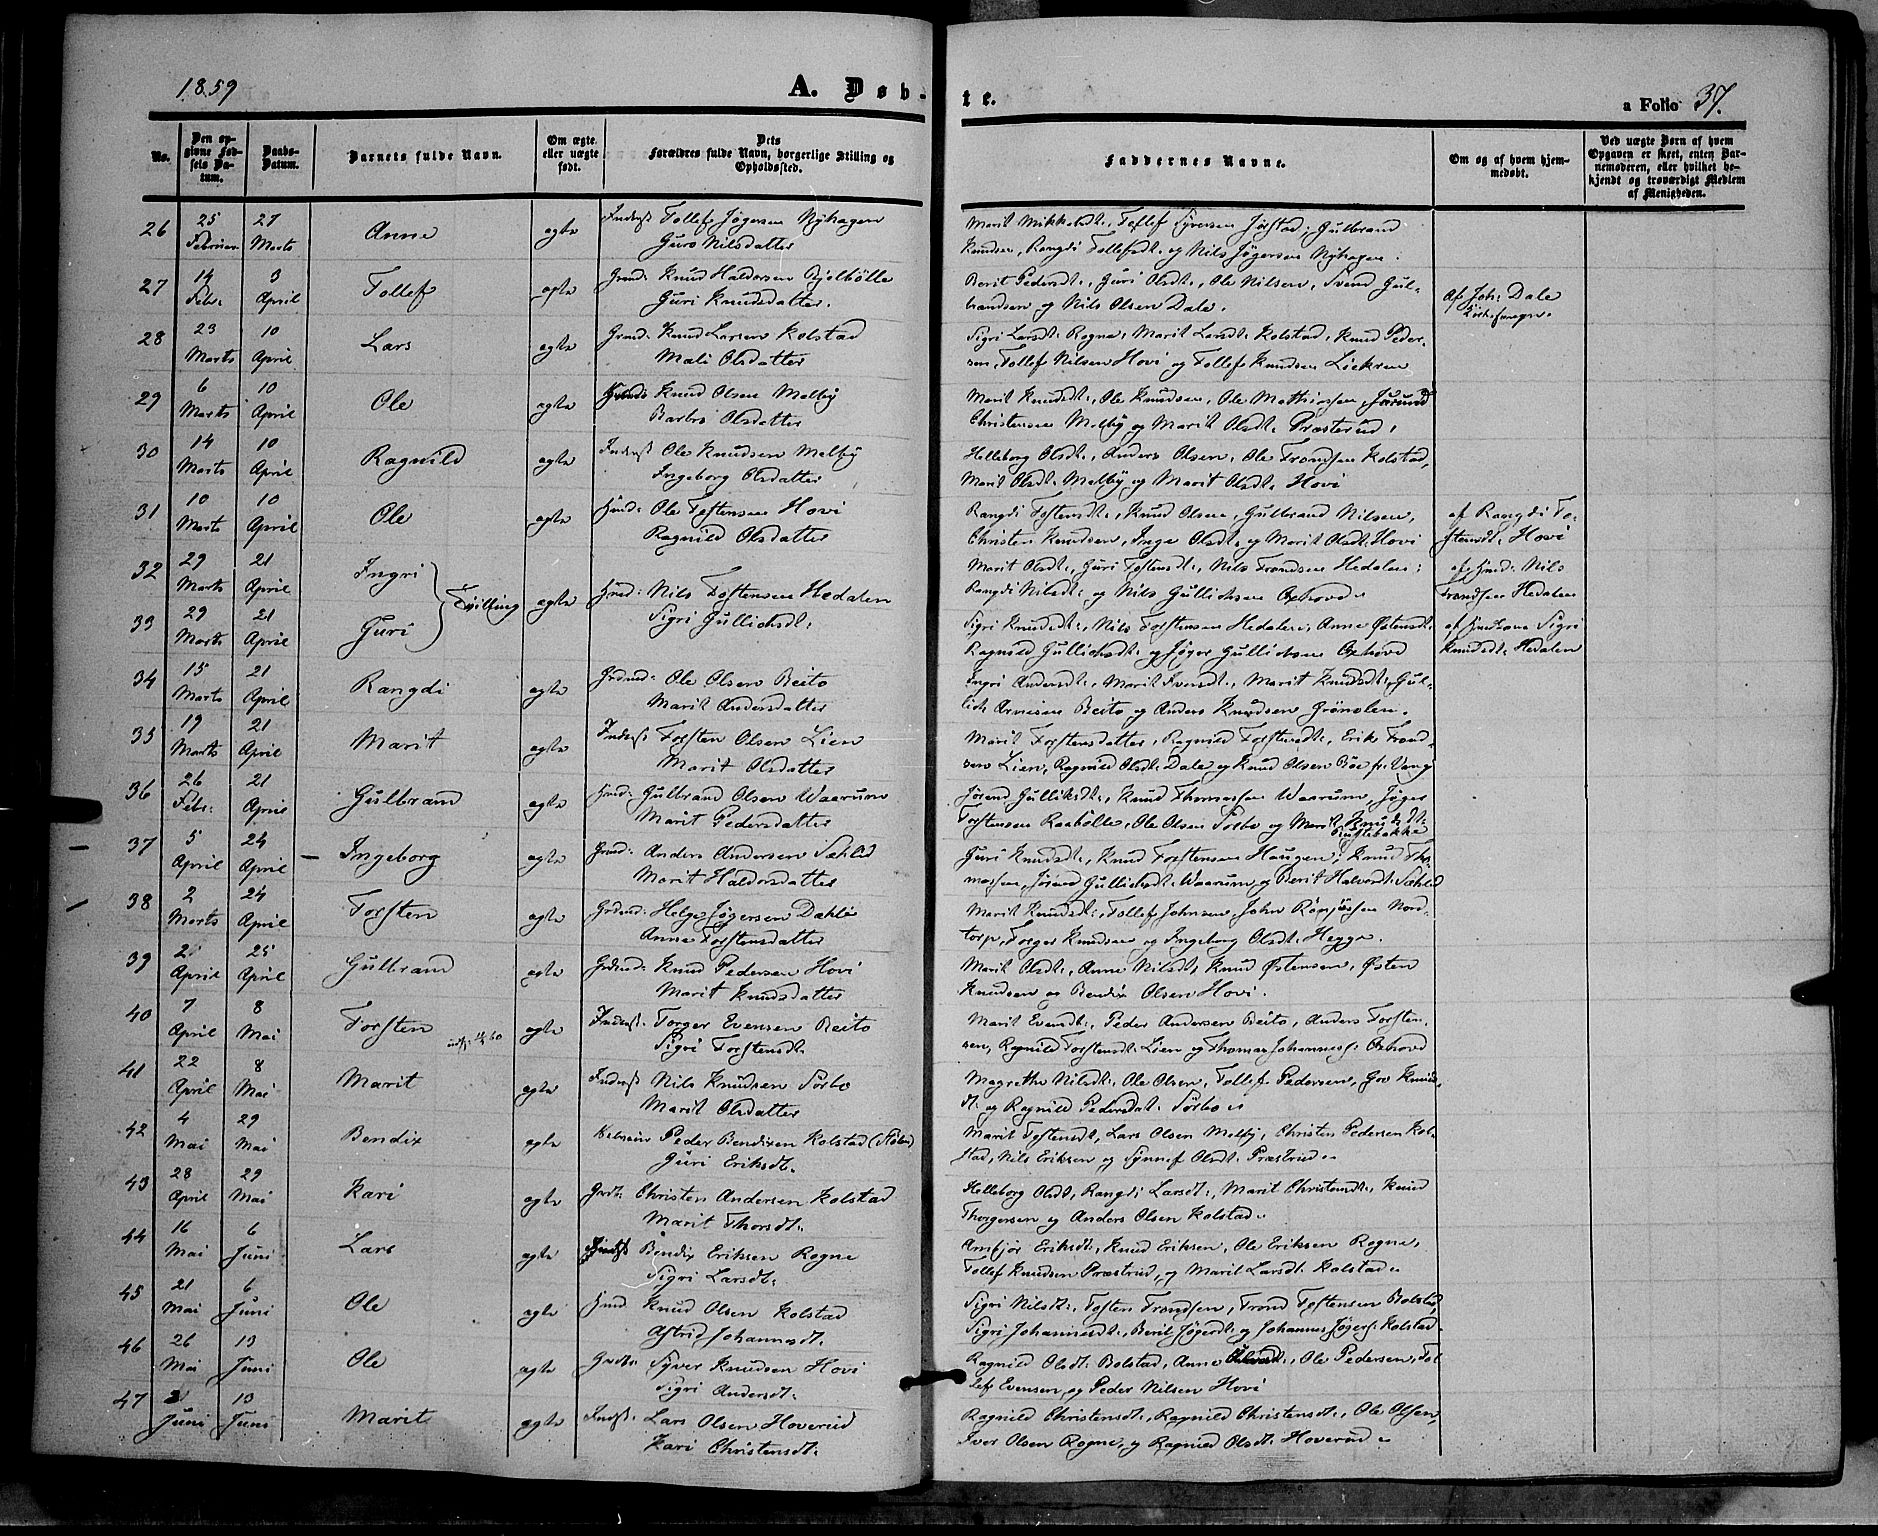 1859
A. Døb-
te.
a Folio 37.
No.
Den op-
givne Fød-
sels Da-
tum.
Daabs-
Datum.
Barnets fulde Navn.
Om ægte
eller uægte
født.
Dets
Forældres fulde Navn, borgerlige Stilling og
Opholdssted.
Faddernes Navne.
Om og af hvem hjem-
medøbt.
Ved uægte Børn af hvem
Opgaven er skeet, enten Bar-
nemoderen, eller hvilket be-
kjendt og troværdigt Medlem
af Menigheden.
26 25 Februar 27 Marts Anne ægte Inderst Tollef Jøgersen Nyhagen
Guro Nilsdatter
Marit Mikkelsdt:, Tollef Syversen Jørstad, Gulbrand
Knudsen, Rangdi Tollefsdt: og Nils Jøgersen Nyhagen.
27 14 Febr: 3 April Tollef ægte Grmd: Knud Haldorsen Bjelbølle
Guri Knudsdatter.
Berit Pedersdt:, Guri Olsdt:, Ole Nilsen, Svend Gul-
brandsen og Nils Olsen Dale.
Af Joh: Dale
28 23 Marts 10 April Lars ægte Grmd: Knud Larsen Kolstad
Mali Olsdatter
Sigri Larsdt: Rogne, Marit Larsdt: Kolstad, Knud Peder-
sen, Tollef Nilsen Hovi og Tollef Knudsen Liekren
29 6 Marts 10 April Ole ægte Knud Olsen Melby
Barbro Olsdatter
Marit Knudsdt:, Ole Knudsen, Ole Mathiassen,
Christensen Melby og Marit Olsdt: Præsterud.
30 14 Marts 10 April Ragnild ægte Inderst Ole Knudsen Melby
Ingeborg Olsdatter
Helleborg Olsdt:, Anders Olsen, Ole Trondsen Kolstad,
Marit Olsdt: Melby og Marit Olsdt: Hovi
31 10 Marts 10 April Ole ægte Hmd: Ole Tostensen Hovi
Ragnild Olsdatter
Rangdi Tostensdt:, Knud Olsen, Gulbrand Nilsen,
Christen Knudsen, Inge Olsdt: og Marit Olsdt: Hovi
af Rangdi To-
stensdt: Hovi
32 29 Marts 21 April Ingri } Tvilling ægte Hmd: Nils Tostensen Hedalen
Sigri Gullichsdt:
Marit Olsdt:, Guri Tostensdt:, Nils Trondsen Hedalen;
Rangdi Nilsdt: og Nils Gullichsen Oxhovd
af Hmd: Nils
Trondsen Hedalen
33 29 Marts 21 April Guri
Sigri Knudsdt:, Nils Torstensen Hedalen, Anne Østensdt:
Ragnild Gullichsdt: og Jøger Gullichsen Oxhovd
af Huskone Sigri
Knudsdt: Hedalen
34 15 Marts 21 April Rangdi ægte Grdmd: Ole Olsen Beito
Marit Andersdatter
Ingri Andersdt:, Marit Iversdt:, Marit Knudsdt:, Gul-
lich Arnesen Beito og Anders Knudsen Grønolen.
35 19 Marts 21 April Marit ægte Inderst: Torsten Olsen Lien
Marit Olsdatter
Marit Torstensdatter, Ragnild Torstensdt:, Erik Trond-
sen Lien, Ragnild Olsdt: Dale og Knud Olsen Bøe fr: Vang
36 26 Febr: 21 April Gulbrand ægte Hmd: Gulbrand Olsen Waarum
Marit Pedersdatter
Jørend Gulliksdt:, Knud Thomassen Waarum, Jøger
Torstensen Raabølle, Ole Olsen Sørbo og Marit Knudsdt:
Rustebakke
37 5 April 24 April Ingeborg ægte Grmd: Anders Andersen Sæhlid
Marit Haldorsdatter
Guri Knudsdt:, Knud Torstensen Haugen, Knud Tho-
massen, Jørend Gullichsdt: Waarum og Berit Halvordt: Sæhlid
38 2 Marts 24 April Torsten ægte Grdmd: Helge Jøgersen Dahle
Anne Torstensdatter
Marit Knudsdt:, Tollef Johnsen, John Nord-
torp, Torger Knudsen og Ingeborg Olsdt: Hegge.
39 2 April 25 April Gulbrand ægte Grdmd: Knud Pedersen Hovi
Marit Knudsdatter
Marit Olsdt:, Anne Nilsdt, Knud Østensen, Østen
Knudsen og Bendix Olsen Hovi.
40 7 April 8 Mai Torsten ægte Inderst: Torger Evensen Beito
Sigri Torstensdt:
Marit Evensdt:, Peder Andersen Beito, Anders Torsten-
sen, Ragnild Torstensdt: Lien og Thomas Johanness: Oxhovd
41 22 April 8 Mai Marit ægte Inderst Nils Knudsen Sørbo
Marit Olsdatter
Magrethe Nilsdt:, Ole Olsen, Tollef Pedersen, Goe Knuds-
dt: og Ragnild Pedersdat: Sørboe
42 4 Mai 29 Mai Bendix ægte Peder Bendixen Kolstad
Guri Eriksdt.
Marit Tostensdt, Lars Olsen Melby, Christen Pedersen Kol-
stad, Nils Eriksen og Synnef Olsdt: Præstrud
43 28 April 29 Mai Kari ægte Grdb: Christen Andersen Kolstad
Marit Thorsdt:
Helleborg Olsdt, Rangdi Larsdt:, Marit Christensdt:, Knud
Thorgersen og Anders Olsen Kolstad
44 16 Mai 6 Juni Lars ægte Indst Bendix Eriksen Rogne
Sigri Larsdt:
Arnfjor Eriksdt:, Knud Eriksen, Ole Eriksen Rogne,
Tollef Knudsen Præstrud, og Marit Larsdt: Kolstad
45 21 Mai 6 Juni Ole ægte Hmd Knud Olsen Kolstad
Astrid Johannesdt:
Sigri Nilsdt:, Tosten Trondsen, Trond Tostensen Bolstad,
Sigri Johannesdt:, Berit Jøgerdt: og Johannes Jøgers: Kolstad
46 26 Mai 13 Juni Ole ægte Grdb: Syver Knudsen Hovi
Sigri Andersdt:
Ragnild Olsdt: Bolstad, Anne, Ole Pedersen, Tol-
lef Evensen, og Peder Nilsen Hovi
47 2 Juni 13 Juni Marit ægte Indst: Lars Olsen Hoverud
Kari Christensdt:
Ragnild Christensdt:, Ragnild Christensdt:, Ole Olsen,
Iver Olsen Rogne, og Ragnild Olsdt: Hoverud